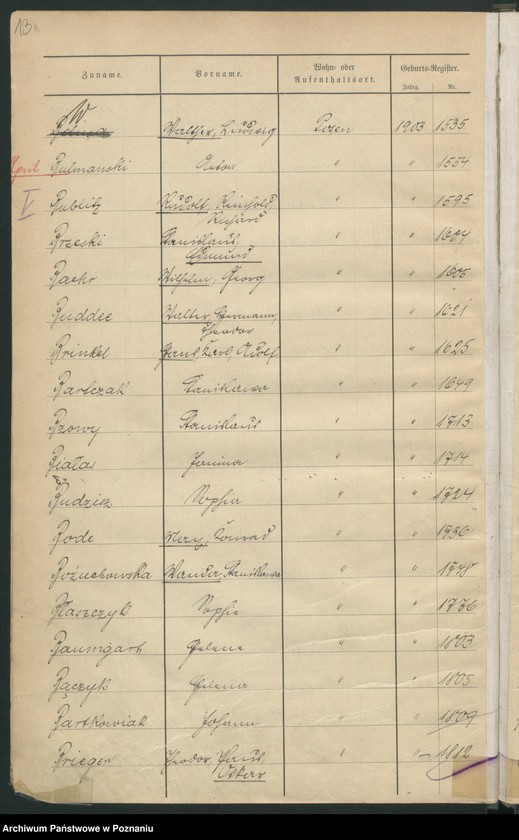 13
Zuname. Vorname. Wohn- oder Aufenthaltsort. Geburts-Register.
Jahrg. Nr.
W
Walther, Ludwig Posen 1903 1535
April Bulmanski Anton " " 1554
V Bublitz Rudolf, Reinhold, " " 1595
Richard
Brzeski Stanislaus, " " 1604
Edmund
Baehr Wilhelm, Georg " " 1605
Buddee Walter, Hermann, " " 1621
Theodor
Brinkel Hans, Karl, Adolf " " 1625
Bartczak Stanislawa " " 1649
Bzowy Stanislaus " " 1713
Białas Janina " " 1714
Budzisz Sophia " " 1724
Bode Max, Konrad " " 1736
Bożuchowska Wanda, Stanislawa " " 1748
Błaszczyk Sophie " " 1776
Baumgart Helene " " 1803
Bączyk Helena " " 1805
Bartkowiak Johann " " 1809
Brieger Theodor, Hans, " " 1812
Oskar
Archiwum Państwowe w Poznaniu